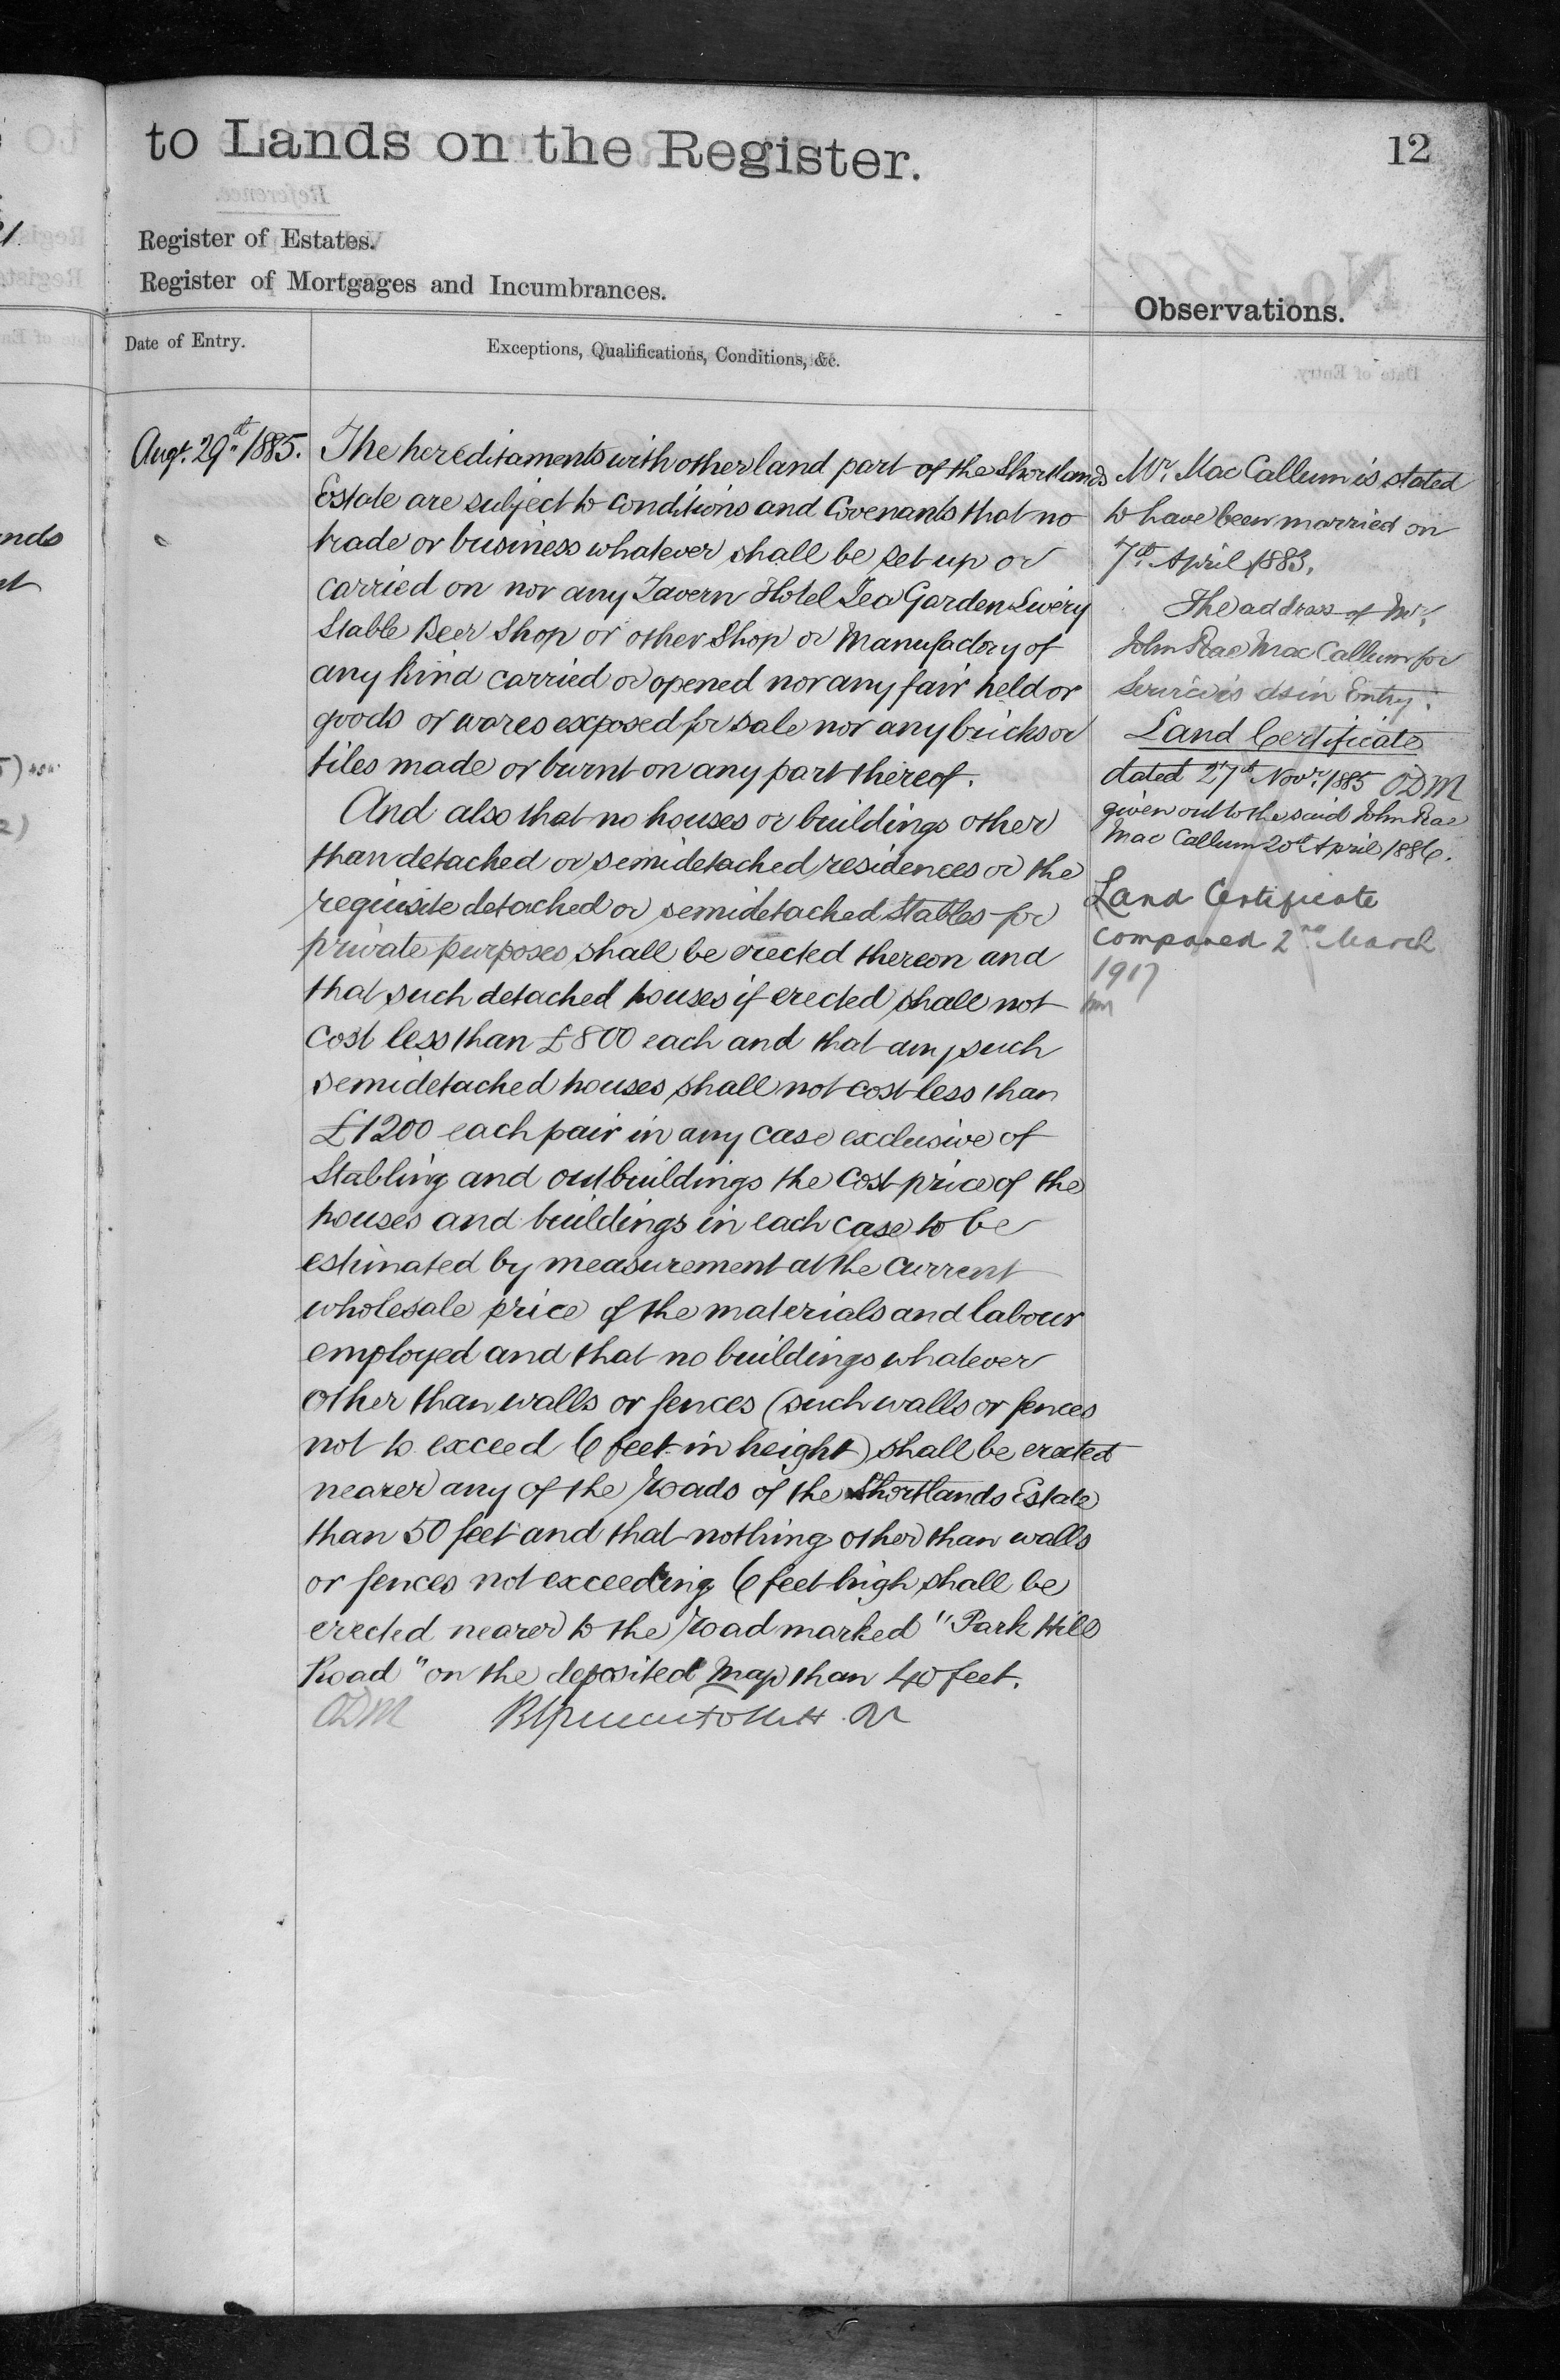 to Lands on the Register.
12
Register of Estates.
Register of Mortgages and Incumbrances.
Observations.
Date of Entry.
Exceptions, Qualifications, Conditions, &c.
Augt. 29th 1885.
The hereditaments with other land part of the Shortlands
Estate are subject to conditions and Covenants that no
trade or business whatever shall be set up or
carried on nor any Tavern Hotel Tea Garden Livery
Stable Beer Shop or other Shop or Manufactory of
any kind carried or opened nor any fair held or
goods or wares exposed for sale nor any bricks or
tiles made or burnt on any part thereof.
And also that no houses or buildings other
than detached or semidetached residences or the
requisite detached or semidetached Stables for
private purposes shall be erected thereon and
that such detached houses if erected shall not
cost less than £800 each and that any such
semidetached houses shall not cost less than
£1200 each pair in any case exclusive of
Stabling and outbuildings the cost price of the
houses and buildings in each case to be
estimated by measurement at the current
wholesale price of the materials and labour
employed and that no buildings whatever
other than walls or fences (such walls or fences
not to exceed 6 feet in height) shall be erected
nearer any of the roads of the Shortlands Estate
than 50 feet and that nothing other than walls
or fences not exceeding 6 feet high shall be
erected nearer to the road marked "Park Hill
Road" on the deposited Map than 40 feet.
ODM
Mr. Mac Callum is stated
to have been married on
7th April 1883.
The address of Mr.
John Rae Mac Callum for
Service is as in Entry.
Land Certificate
dated 27th Novr. 1885 ODM
given out to the said John Rae
Mac Callum 20th April 1886.
Land Certificate
compared 2nd March
1917
nds
5)
2)